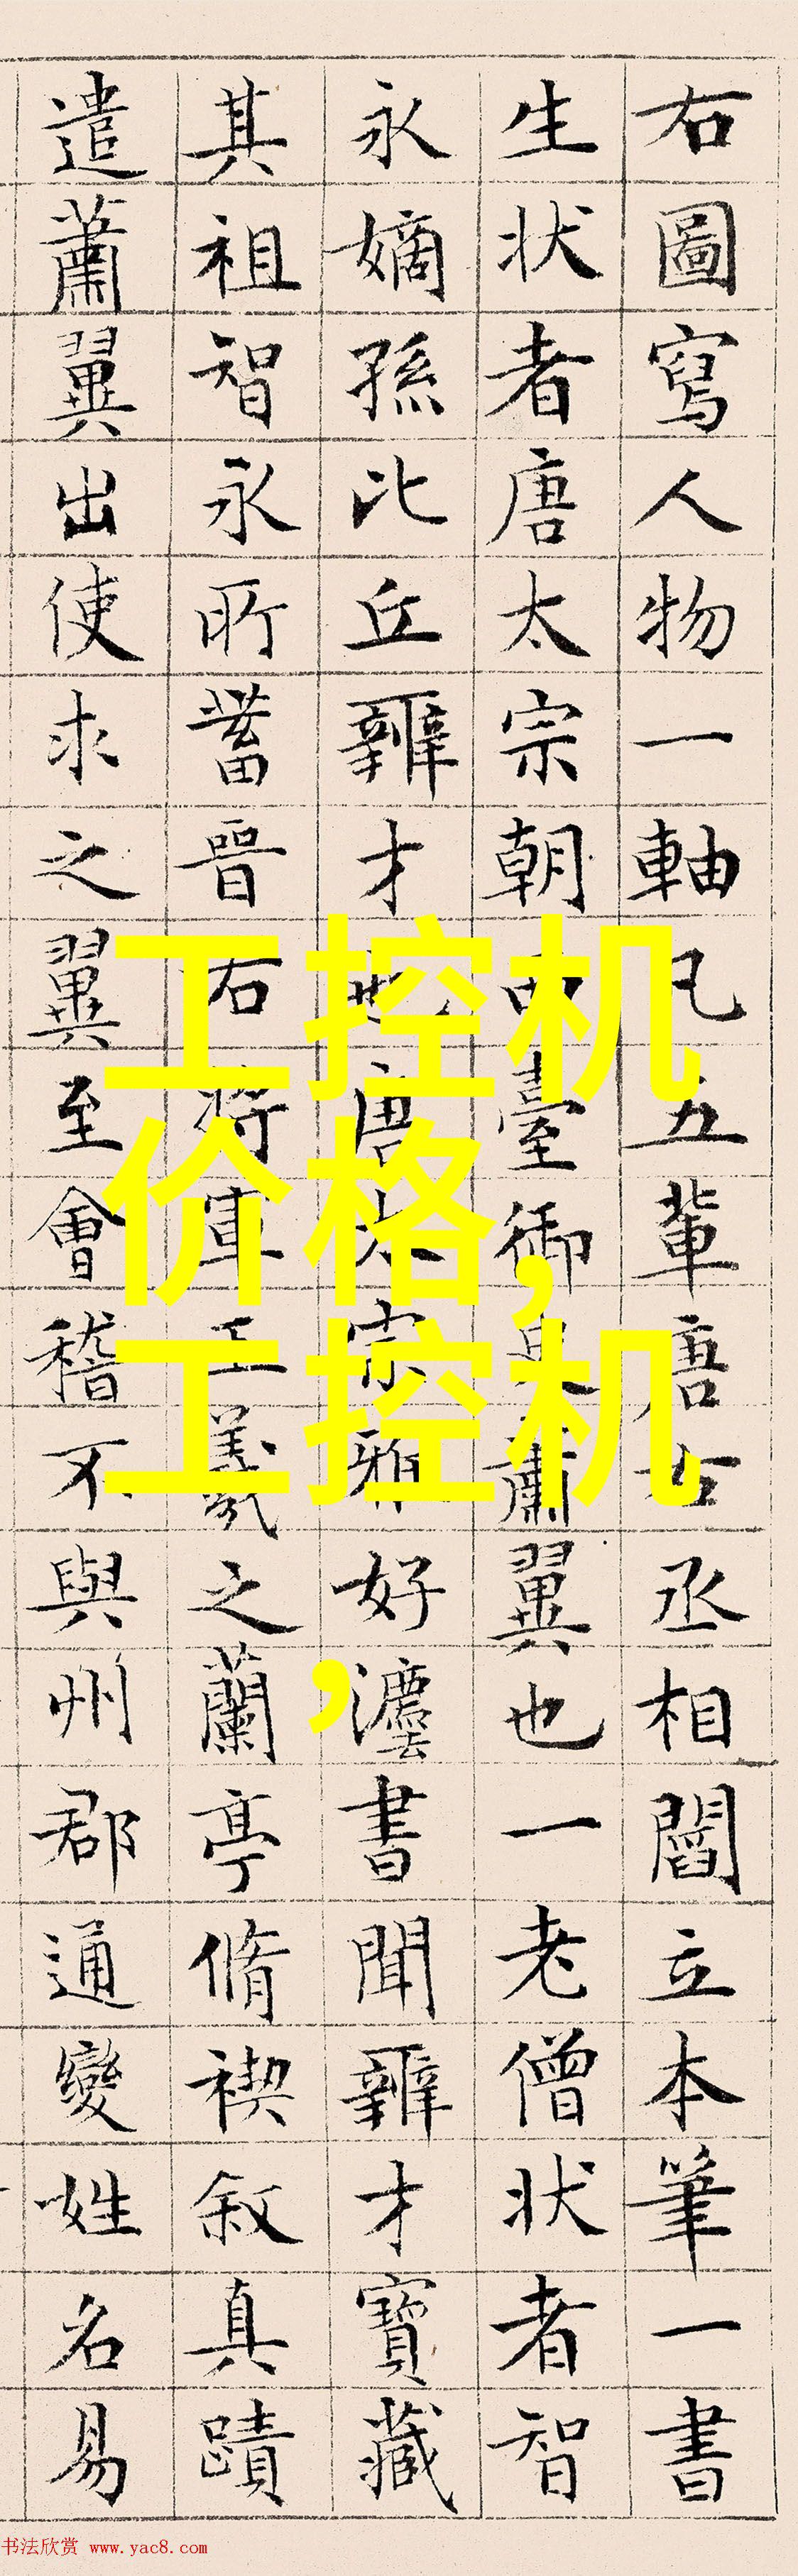 右圖寫人物一軸凡五輩唐右丞相閻立本筆一書
生状者唐太宗朝西臺御史蕭翼也一老僧状者智
永嫡孫比丘辯才也唐太宗雅好灋書聞辯才寶藏
其祖智永所蓄晉右將軍王羲之蘭亭脩禊敘真蹟
遣蕭翼出使求之翼至會稽不與州郡通變姓名易
工控机
价格,
工控机
,
书法欣赏 www.yac8.com